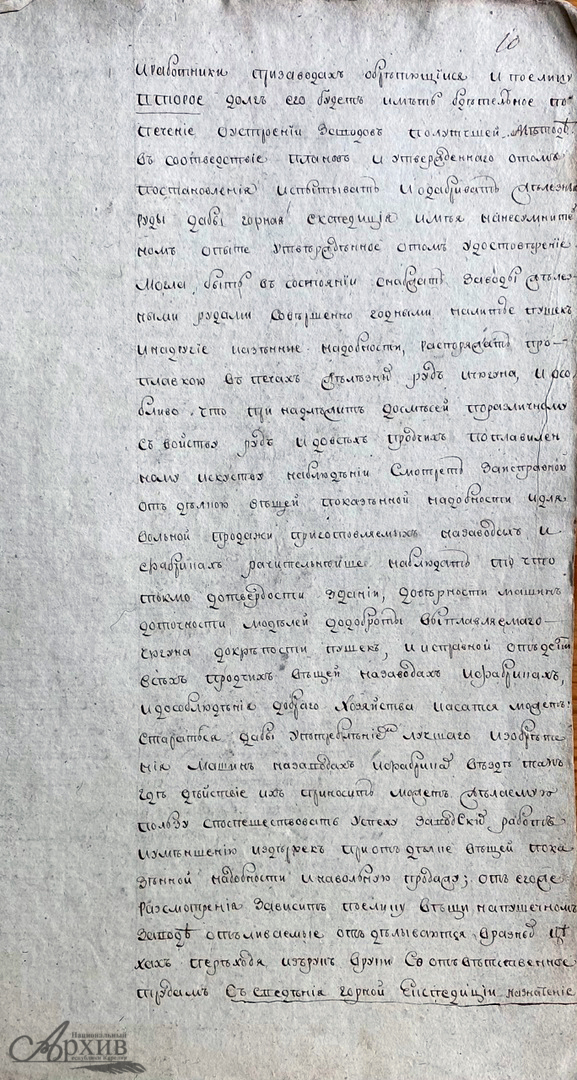 10
и работники при заводахъ обретающiися и поелику
второе долгъ его будетъ иметь бдительное по
печенiе о устроенiи заводовъ по лутчшей методѣ
въ соответствiе плановъ и утвержденнаго о томъ
постановленiя испытывать и одабривать железныя
руды дабы горная экспедицiя имѣя на несумните
номъ опыте утвержденное о томъ удостоверенiе
могла быть въ состоянiи снабжать заводы желез
ными рудами совершенно годными на литье пушекъ
и на другiе казенные надобности, распоряжать про-
плавкою въ печахъ железныхъ рудъ и чюгуна, и осо
бливо что принадлежитъ до смесей по различному
свойству рудъ и до всехъ протчихъ по плавилен
ному искуству наблюденiи смотреть за исправною
отделкою вещей по казенной надобности и для
вольной продажи приготовляемыхъ на заводехъ и
фабрикахъ рачительнейше наблюдать по что
токмо до твердости зданiи, до верности машинъ
до точности моделей до доброты выплавляемаго
чюгуна до крепости пушекъ, и исправной отделки
всехъ протчихъ вещей на заводахъ и фабрикахъ,
и до соблюденiя добраго хозяйства касатся можетъ:
старатся дабы употребленiемъ лучшаго изобрѣте
нiя машинъ на заводахъ и фабрикахъ везде тамъ
где действiе ихъ приносить можетъ желаемую
пользу споспешествовать успеху заводскихъ работъ
и уменьшенiю издержекъ при отделке вещей по ка
зенной надобности и на вольную продажу; отъ его же
разсмотренiя зависитъ поелику вещи на пушечномъ
заводѣ отливаемые отделываются в разныхъ це
хахъ переходя изъ рукъ в руки со ответственное
съ веденiя горной експедицiи назначенiе
Национальный
Архив
республики Карелия